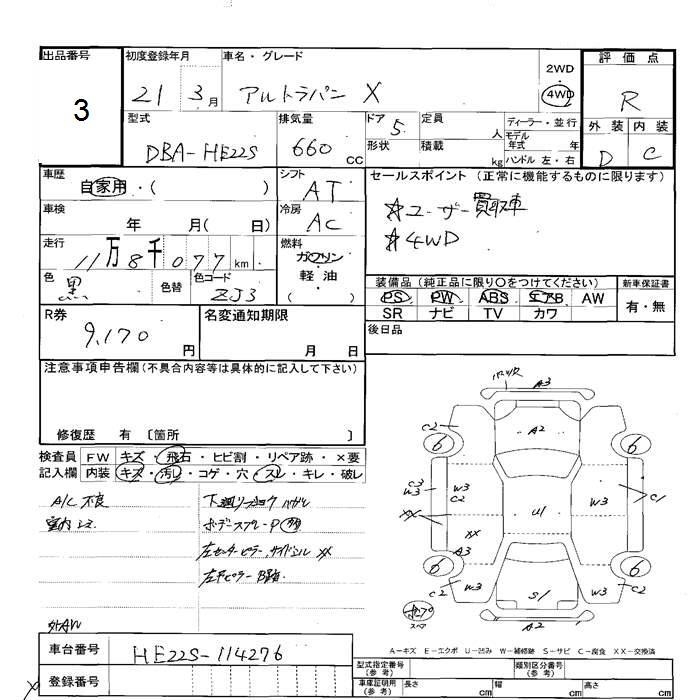 出品番号 初度登録年月 車名・グレード 2WD 評価点
3 21 3月 アルトラパン X 4WD R
型式 排気量 ドア 5 定員 人 ディーラー・並行 外装 内装
DBA-HE22S 660 CC 形状 積載 kg モデル年式 年 D C
ハンドル 左・右
車歴 自家用・( ) シフト AT セールスポイント (正常に機能するものに限ります)
車検 年 月( 日) 冷房 AC ☆ユーザー買取車
☆4WD
走行 11万8千077km 燃料 ガソリン
軽油
( )
色 黒 色替 色コード ZJ3 装備品(純正品に限り○をつけてください) 新車保証書
PS PW ABS エアB AW 有・無
SR ナビ TV カワ
R券 9,170 円 名変通知期限 月 日 後日品
注意事項申告欄(不具合内容等は具体的に記入して下さい)
修復歴 有 〔箇所 〕
検査員 FW キズ・飛石・ヒビ割・リペア跡・×要
記入欄 内装 キズ・汚レ・コゲ・穴・スレ・キレ・破レ
A/C 不良
室内シミ
外AW
A3
A2
C2
6 6
C3
W3
W3
C2
W3
C1
XX
U1
XX
A3
6 6
C2 W3 S1 W3 C2
A2
スペア
A-キズ E-エクボ U-凹み W-補修跡 S-サビ C-腐食 XX-交換済
車台番号 HE22S-114276
登録番号
型式指定番号(参考) 類別区分番号(参考)
車庫証明用(参考) 長さ cm 幅 cm 高さ cm